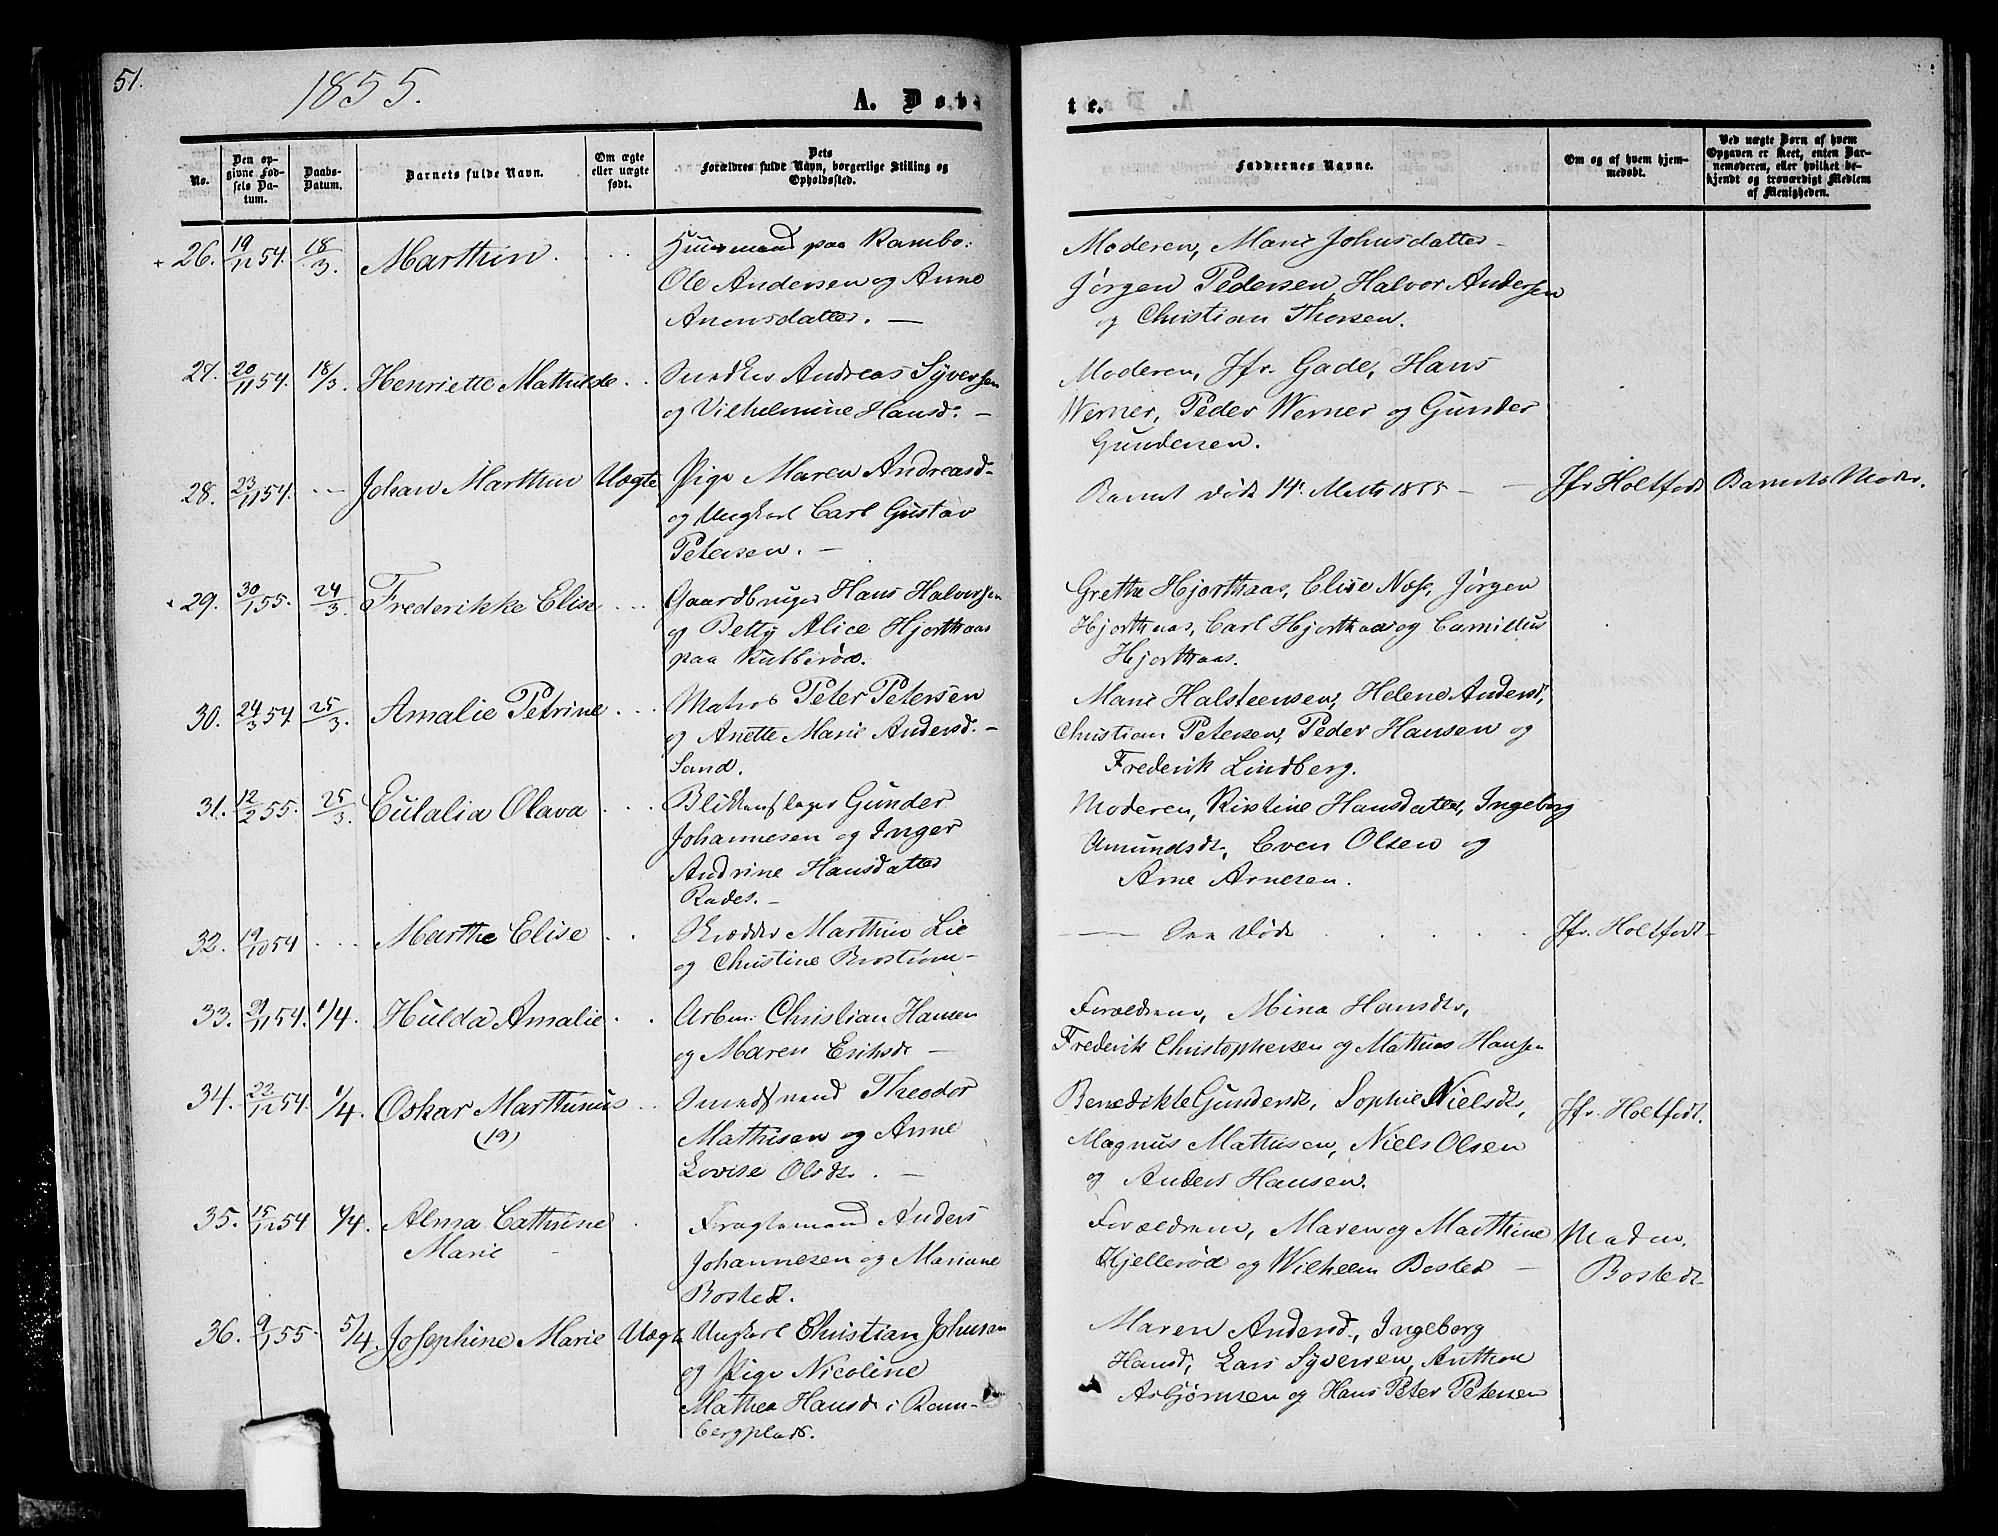 51.
1855.
A. Døb-
te.
No.
Den opgivne Fødsels Datum.
Daabs-Datum.
Barnets fulde Navn.
Om ægte eller uægte født.
Dets Forældres fulde Navn, borgerlige Stilling og Opholdssted.
Faddernes Navne.
Om og af hvem hjemmedøbt.
Ved uægte Børn af hvem Opgaven er skeet, enten Barnemoderen, eller hvilket bekjendt og troværdigt Medlem af Menigheden.
26. 19/11 54. 18/3. Marthin
Huusmand paa Rambo:
Ole Andersen og Anne
Anonsdatter. —
Moderen, Marie Johnsdatter
Jørgen Pedersen, Halvor Andersen
og Christian Thorsen.
27. 20/11 54. 18/3. Henriette Mathilde
Snedker Andreas Syversen
og Vilhelmine Hansd. —
Moderen, Jfr. Gade, Hans
Werner, Peder Werner og Gunder
Gundersen.
28. 23/11 54. — Johan Marthin Uægte
Pige Maren Andreasd.
og Ungkarl Carl Gustav
Petersen. —
Barnet døde 14. Marts 1855 —
Jfr. Holtfodt
Barnets Moder.
29. 30/1 55. 24/3. Frederikke Elise
Gaardbruger Hans Halvorsen
og Betty Alice Hjorthaas
paa
Grethe Hjorthaas, Elise Næss, Jørgen
Hjorthaas, Carl Hjorthaas og Camillus
Hjorthaas.
30. 24/3 54. 25/3. Amalie Petrine
Matros Peter Petersen
og Anette Marie Andersd. —
Sand.
Marie Halsteensen, Helene Andersd,
Christian Petersen, Peder Hansen og
Frederik Lindberg.
31. 12/2 55. 25/3. Eulalia Olava
Blikkenslager Gunder
Johannesen og Inger
Andrine Hansdatter
Rades. —
Moderen, Kirstine Hansdatter, Ingeborg
Amundsdr, Even Olsen og
Arne Arnesen.
32. 19/10 54 Marthe Elise
Skrædder Marthin Lie
og Christine
— Saa døde
Jfr. Holtfodt
33. 21/11 54. 1/4. Hulda Amalie
Arbm: Christian Hansen
og Maren Eriksdr —
Forældrene, Mina Hansdr,
Frederik Christophersen og Mathias Hansen
34. 22/12 54. 1/4. Oskar Marthinus
(19)
Theodor
Mathisen og Anne
Lovise Olsdr. —
Benedikte Gundersdr, Sophie Nielsdr,
Magnus Mathisen, Niels Olsen
og Anders Hansen.
Jfr. Holtfodt.
35. 15/12 54 1/4. Alma Cathrine
Marie
Fragtemand Anders
Johannesen og Mariane
Bostedt.
Forældrene, Maren og Marthine
Kjellerød og Wilhelm Bosted —
Madm.
Bostedt
36. 9/1 55. 5/4. Josephine Marie Uægte
Ungkarl Christian Johnsen
og Pige Nicoline
Mathea Hansdr i Ram-
bergplads.
Maren Andersd., Ingeborg
Hansd, Lars Syversen, Anthon
Asbjørnsen og Hans Peter Petersen